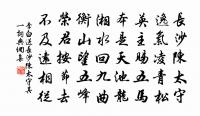 長沙陳太守
逸氣凌青松
英主賜五馬
本是天池龍
湘水回九曲
衡山望五峰
榮君按節去
不及遠相從
李白送長沙陳太守其
一詞典網集